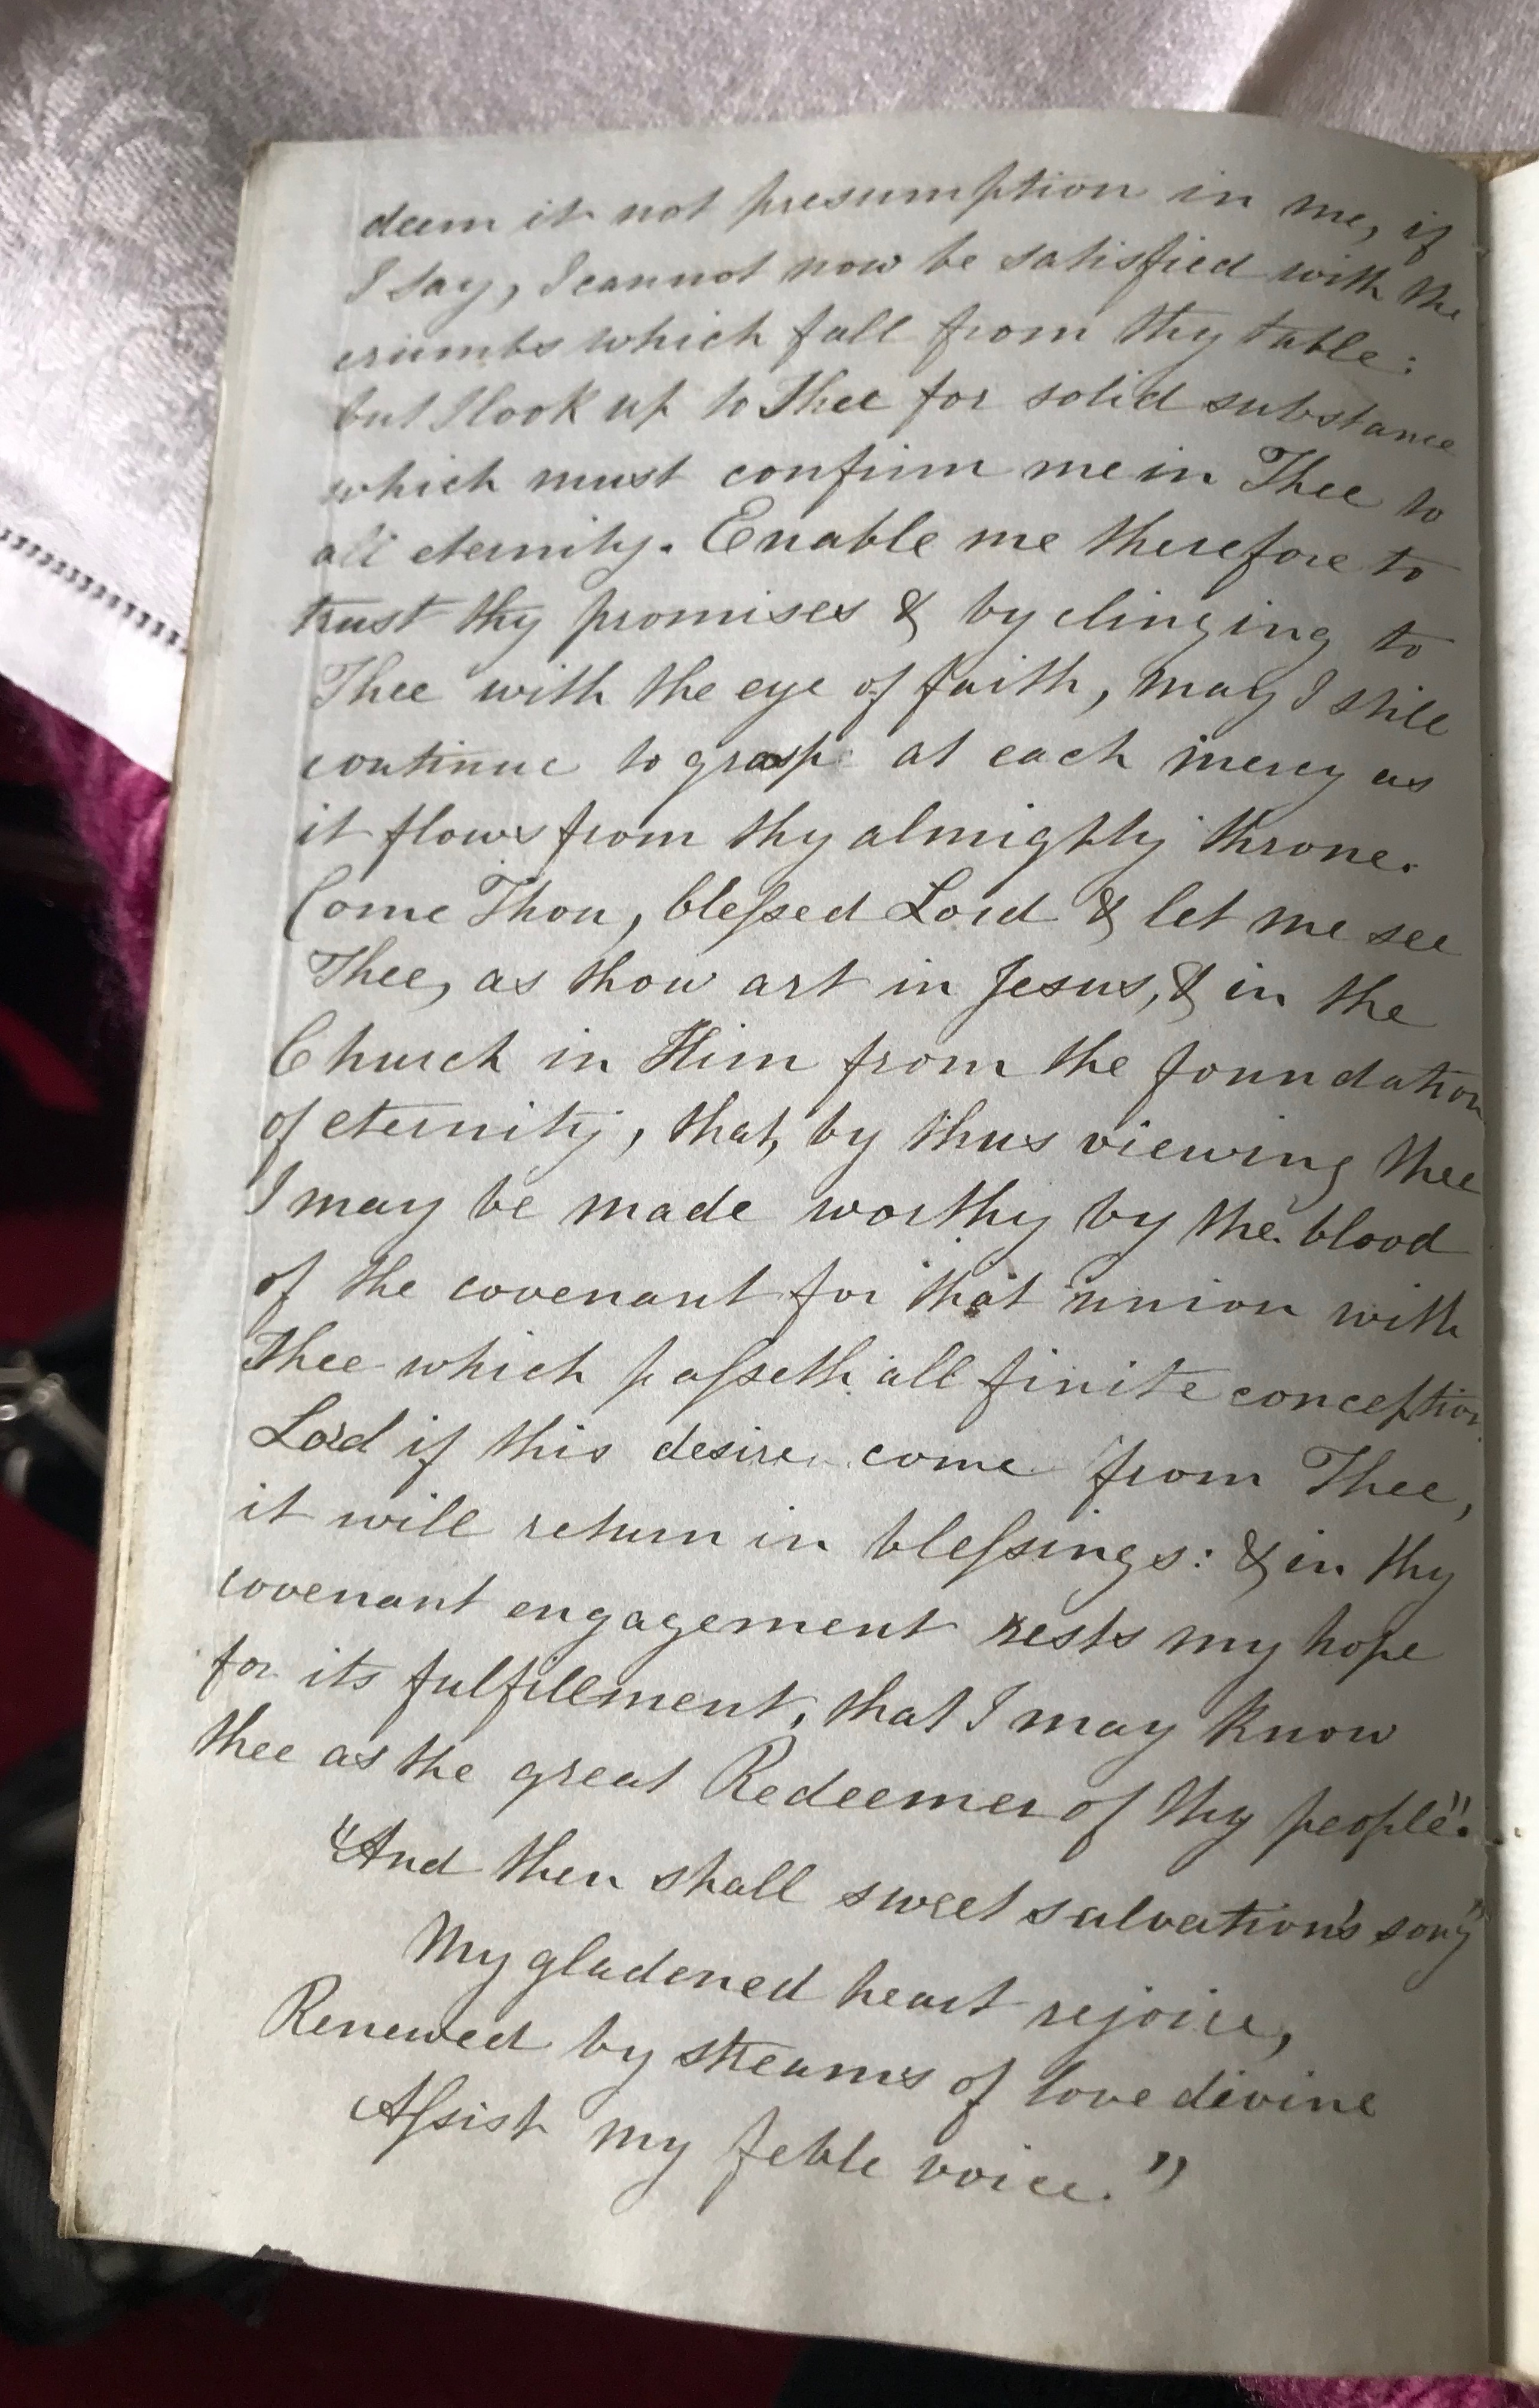 deem it not presumption in me, if
I say, I cannot now be satisfied with the
crumbs which fall from thy table:
but I look up to Thee for solid substance
which must confirm me in Thee to
all eternity. Enable me therefore to
trust thy promises & by clinging to
Thee with the eye of faith, may I still
continue to grasp at each mercy as
it flows from thy almighty throne.
Come Thou, bleſsed Lord & let me see
Thee, as thou art in Jesus, & in the
Church in Him from the foundation
of eternity, that, by thus viewing thee
I may be made worthy by the blood
of the covenant for that union with
Thee which paſseth all finite conception.
Lord if this desire come from Thee,
it will return in bleſsings: & in thy
covenant engagement rests my hope
for its fulfillment, that I may know
thee as the great Redeemer of thy people".
"And then shall sweet salvation's song"
My gladened heart rejoice,
Renewed by streams of love divine
Aſsist my feble voice."